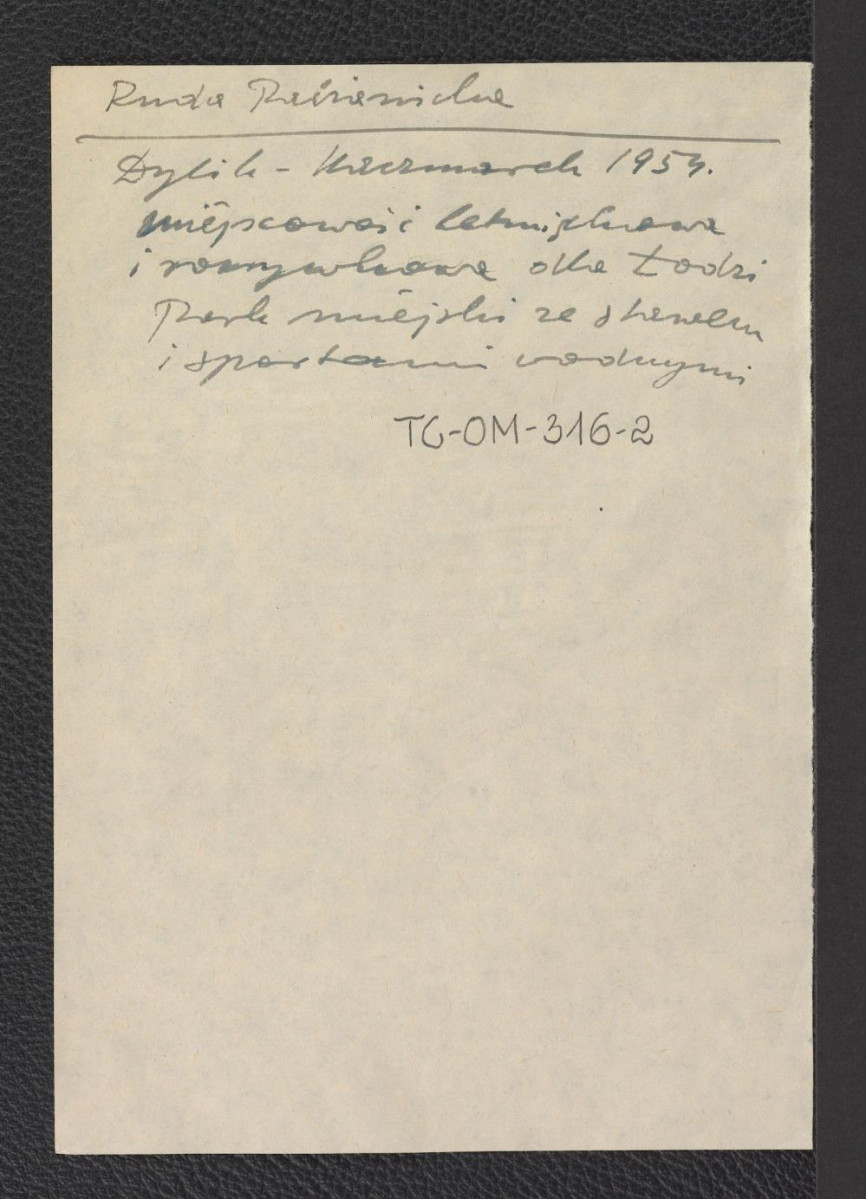 Ruda Pabianicka
Dylik - Kaczmarek 1954.
miejscowość letniskowa
i rozrywkowa dla Łodzi
Park miejski ze stawem
i sportami wodnymi
TG-OM-316-2